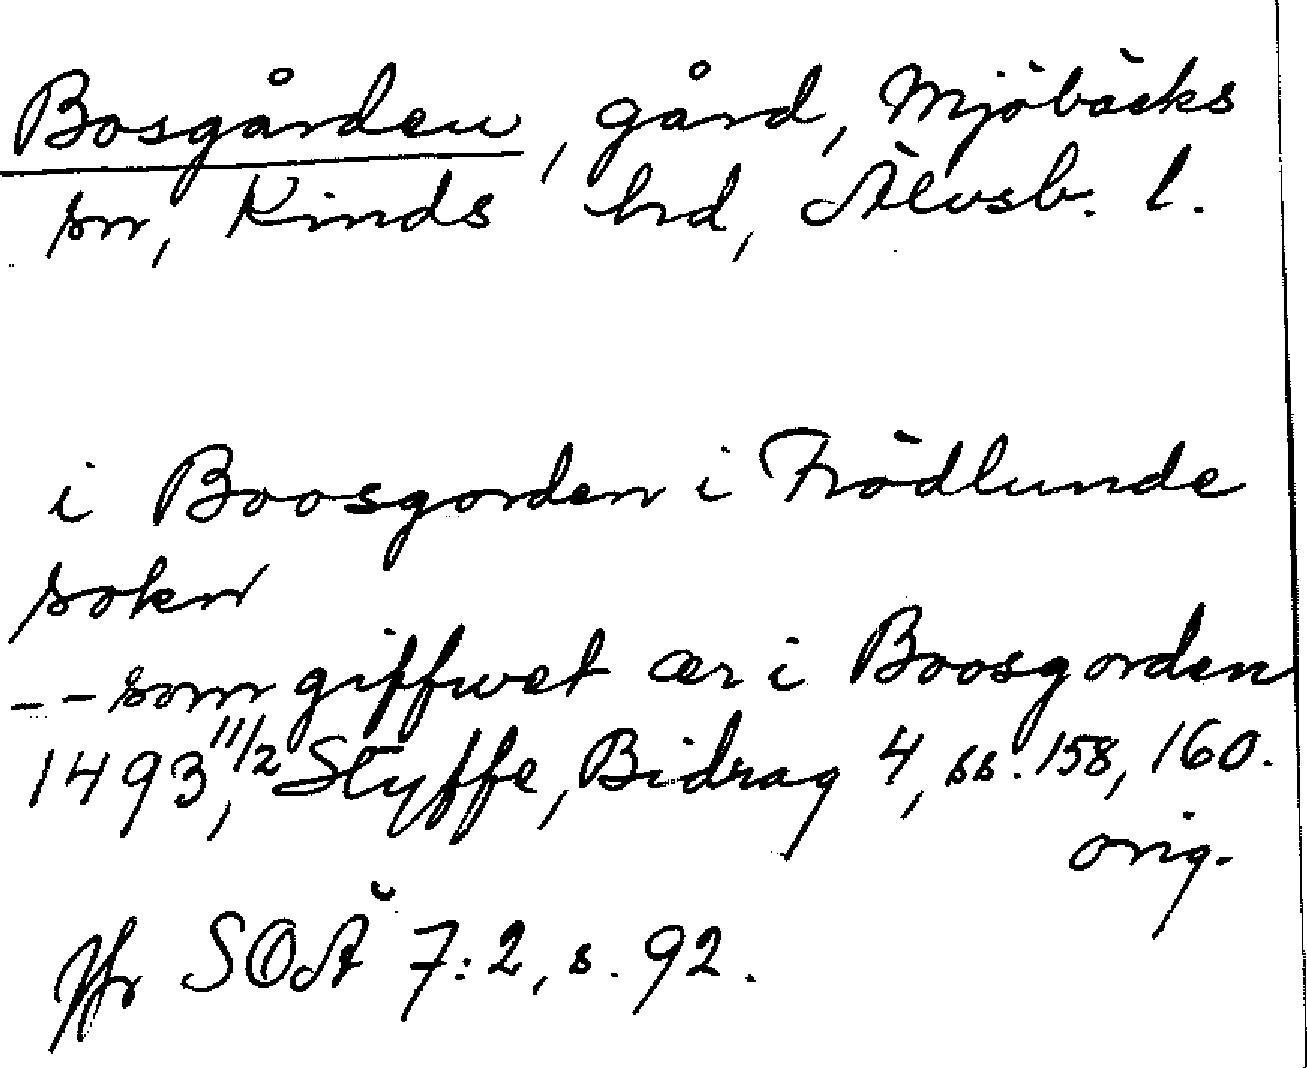 Bosgården, gård, Mjöbäcks
sn, Kinds hd, Älvsb. l.
i Boosgorden i Frödlunde
sokn
-- som giffwet ær i Boosgorden
1493 11/2, Styffe, Bidrag 4, ss. 158, 160.
orig.
Jfr SOÄ 7:2, s. 92.